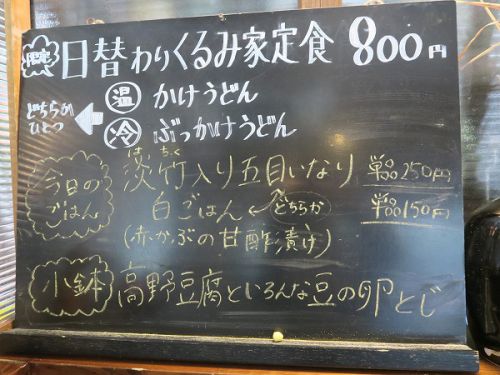 限定 日替わりくるみ家定食 800円
どちらか
ひとつ
温 かけうどん
冷 ぶっかけうどん
今日の
ごはん
はちく
淡竹入り五目いなり 単品250円
白ごはん どちらか 単品150円
(赤かぶの甘酢漬け)
小鉢 高野豆腐といろんな豆の卵とじ